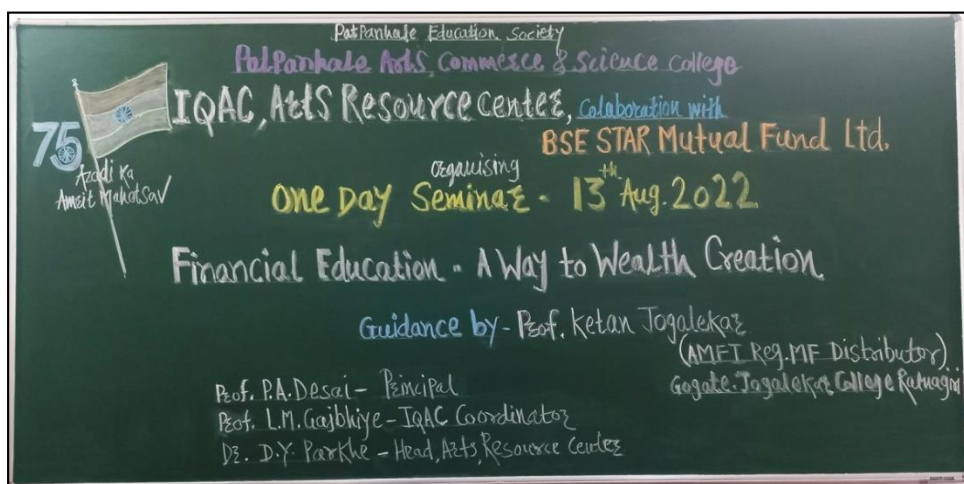 PatPanhale Education Society
PatPanhale Arts, Commerce & Science College
IQAC, Arts Resource Center, Colaboration with
BSE STAR Mutual Fund Ltd.
75
Azadi Ka
Amrit Mahotsav
Organising
One Day Seminar - 13th Aug. 2022
Financial Education - A Way to Wealth Creation
Guidance by - Prof. Ketan Jogalekar
(AMFI Reg. MF Distributor)
Gogate-Jogalekar College Ratnagiri
Prof. P.A. Desai - Principal
Prof. L.M. Gajbhiye - IQAC Coordinator
Dr. D.Y. Parkhe - Head, Arts, Resource Center